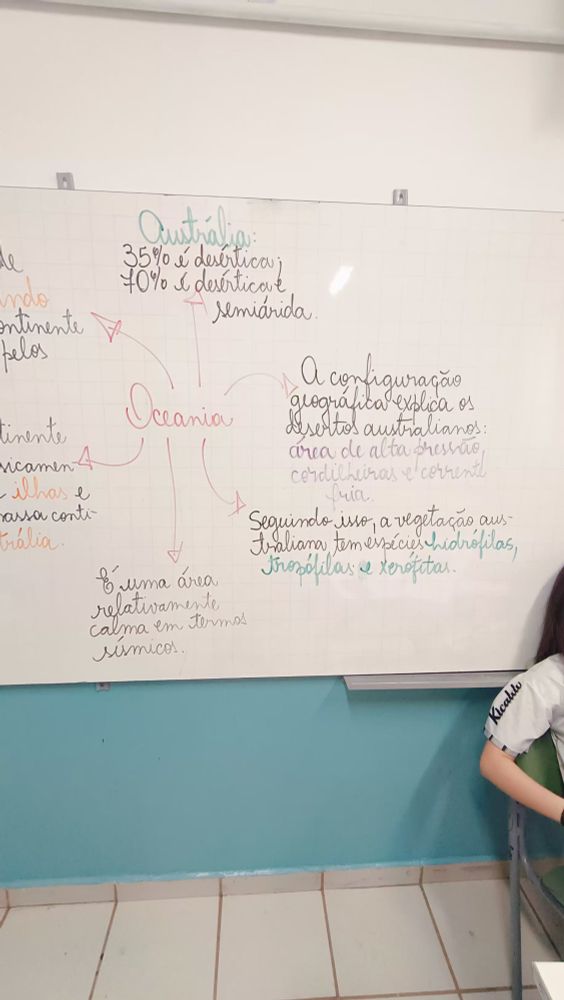 Austrália:
35% é desértica;
70% é desértica e
semiárida.
de
ando
ontinente
pelos
Oceania
A configuração
geográfica explica os
desertos australianos:
área de alta pressão,
cordilheiras e corrente
fria.
tinente
sicamen-
ilhas e
massa conti-
trália.
Seguindo isso, a vegetação aus-
traliana tem espécies hidrófilas,
tropófilas e xerófitas.
É uma área
relativamente
calma em termos
sísmicos.